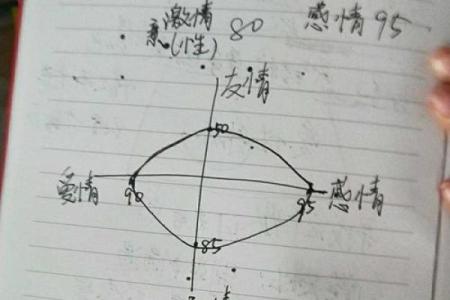 激情 80 感情 95
(性)
友情
50
爱情 感情
90 95
85
情